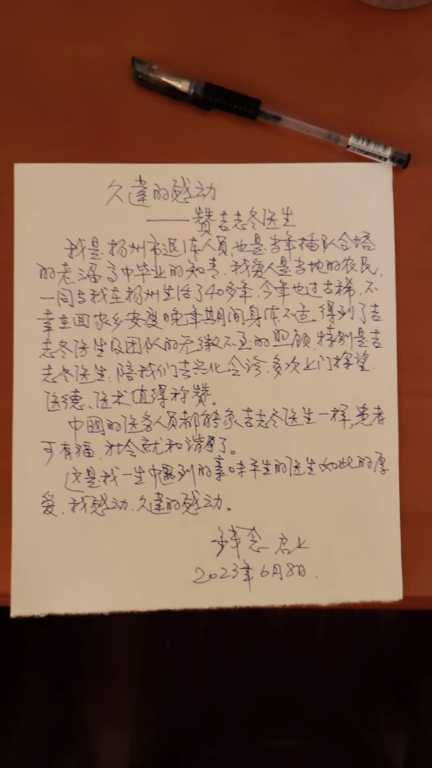 久违的感动
——赞吉志冬医生
我是扬州市退休人员,也是当年插队合塔
的老潘高中毕业的知青,我爱人是当地的农民,
一同与我在扬州生活了40多年,今年也过古稀,不
幸在回家乡安度晚年期间身体不适,得到了吉
志冬医生及团队的无微不至的照顾,特别是吉
志冬医生,陪我们去兴化会诊,多次上门探望
医德、医术值得称赞。
中国的医务人员都能象吉志冬医生一样,患者
可有福,社会就和谐了。
这是我一生中遇到的素味平生的医生如此的厚
爱,我感动,久违的感动。
2023年6月8日.